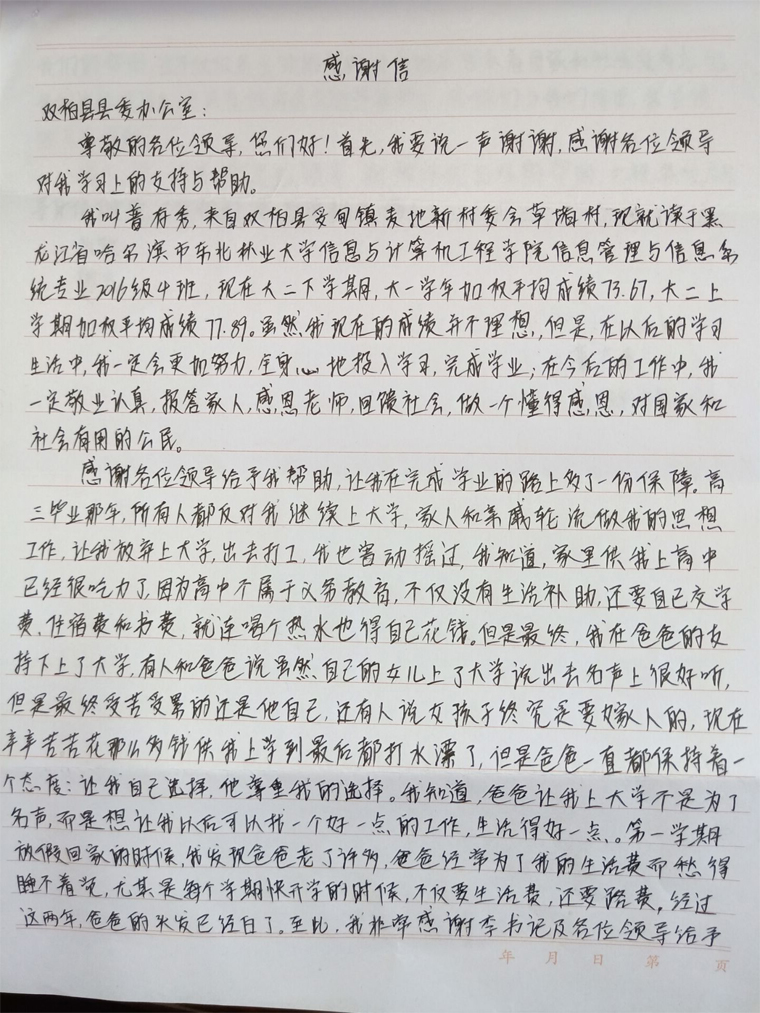 感谢信
双柏县县委办公室：
尊敬的各位领导，您们好！首先，我要说一声谢谢，感谢各位领导
对我学习上的支持与帮助。
我叫普存秀，来自双柏县妥甸镇麦地新村委会草堆村，现就读于黑
龙江省哈尔滨市东北林业大学信息与计算机工程学院信息管理与信息系
统专业2016级4班，现在大二下学期，大一学年加权平均成绩73.67，大二上
学期加权平均成绩77.89。虽然我现在的成绩并不理想，但是，在以后的学习
生活中，我一定会更加努力，全身心地投入学习，完成学业；在今后的工作中，我
一定敬业认真，报答家人，感恩老师，回馈社会，做一个懂得感恩，对国家和
社会有用的公民。
感谢各位领导给予我帮助，让我在完成学业的路上多了一份保障。高
三毕业那年，所有人都反对我继续上大学，家人和亲戚轮流做我的思想
工作，让我放弃上大学，出去打工，我也曾动摇过，我知道，家里供我上高中
已经很吃力了，因为高中不属于义务教育，不仅没有生活补助，还要自己交学
费、住宿费和书费，就连喝个热水也得自己花钱。但是最终，我在爸爸的支
持下上了大学，有人和爸爸说虽然自己的女儿上了大学说出去名声上很好听，
但是最终受苦受累的还是他自己，还有人说女孩子终究是要嫁人的，现在
辛辛苦苦花那么多钱供我上学到最后都打水漂了，但是爸爸一直都保持着一
个态度：让我自己选择，他尊重我的选择。我知道，爸爸让我上大学不是为了
名声，而是想让我以后可以找一个好一点的工作，生活得好一点。第一学期
放假回家的时候，我发现爸爸老了许多，爸爸经常为了我的生活费而愁得
睡不着觉，尤其是每个学期快开学的时候，不仅要生活费，还要路费。经过
这两年，爸爸的头发已经白了。至此，我非常感谢李书记及各位领导给予
年 月 日 第 页